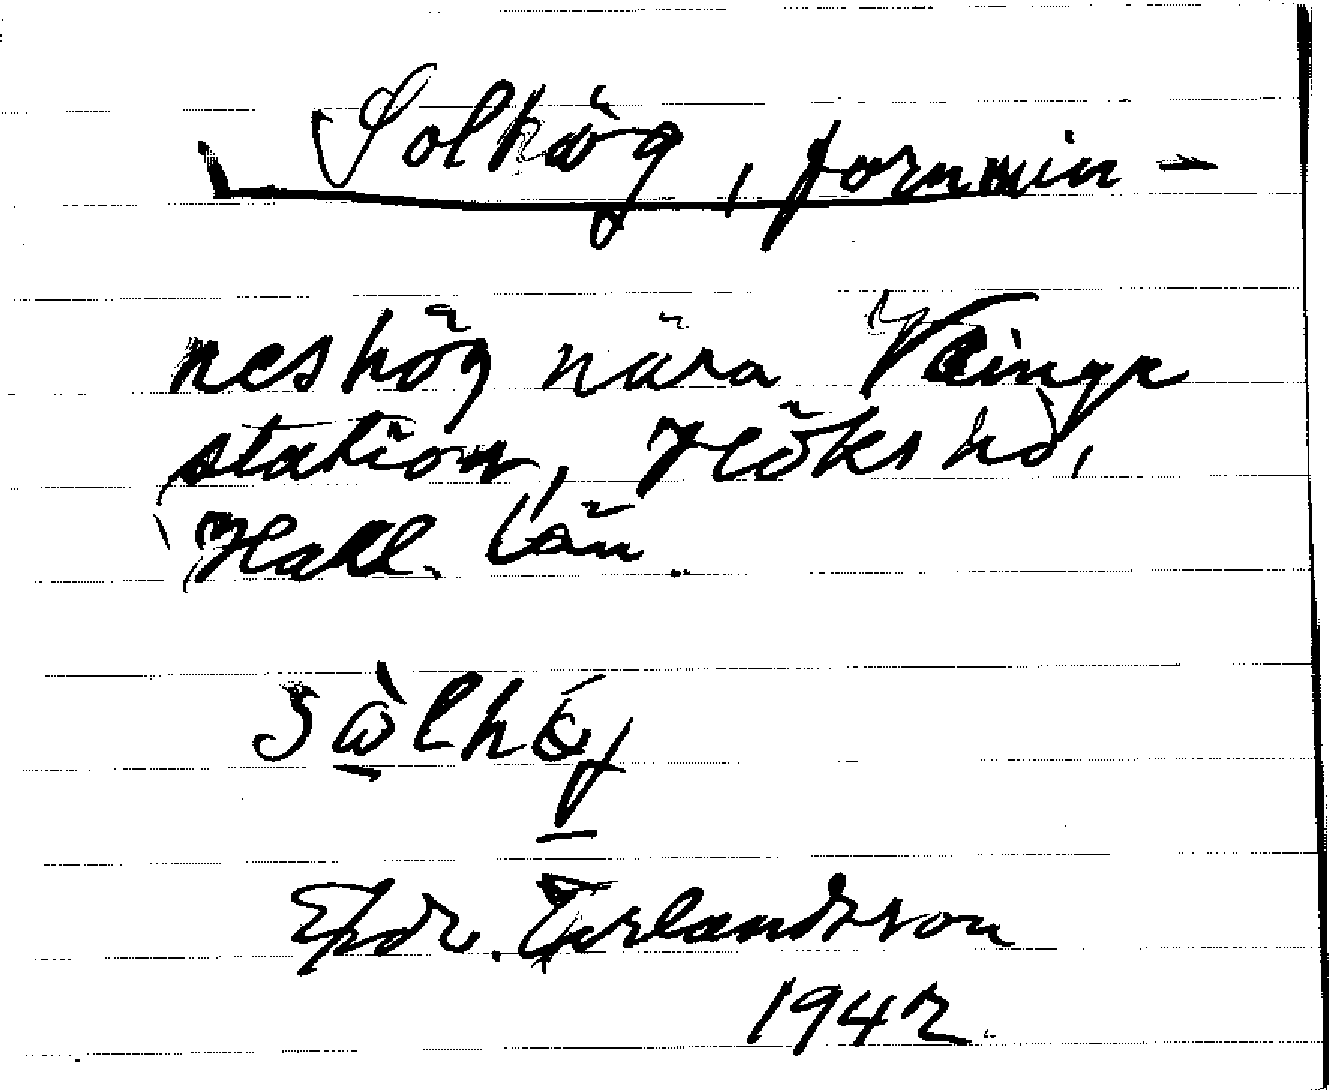 Solhög, fornmin-
neshög nära Veinge
station, Höks hd,
Hall. län.
sàlhó̜j
Efdr. Erlandsson
1942